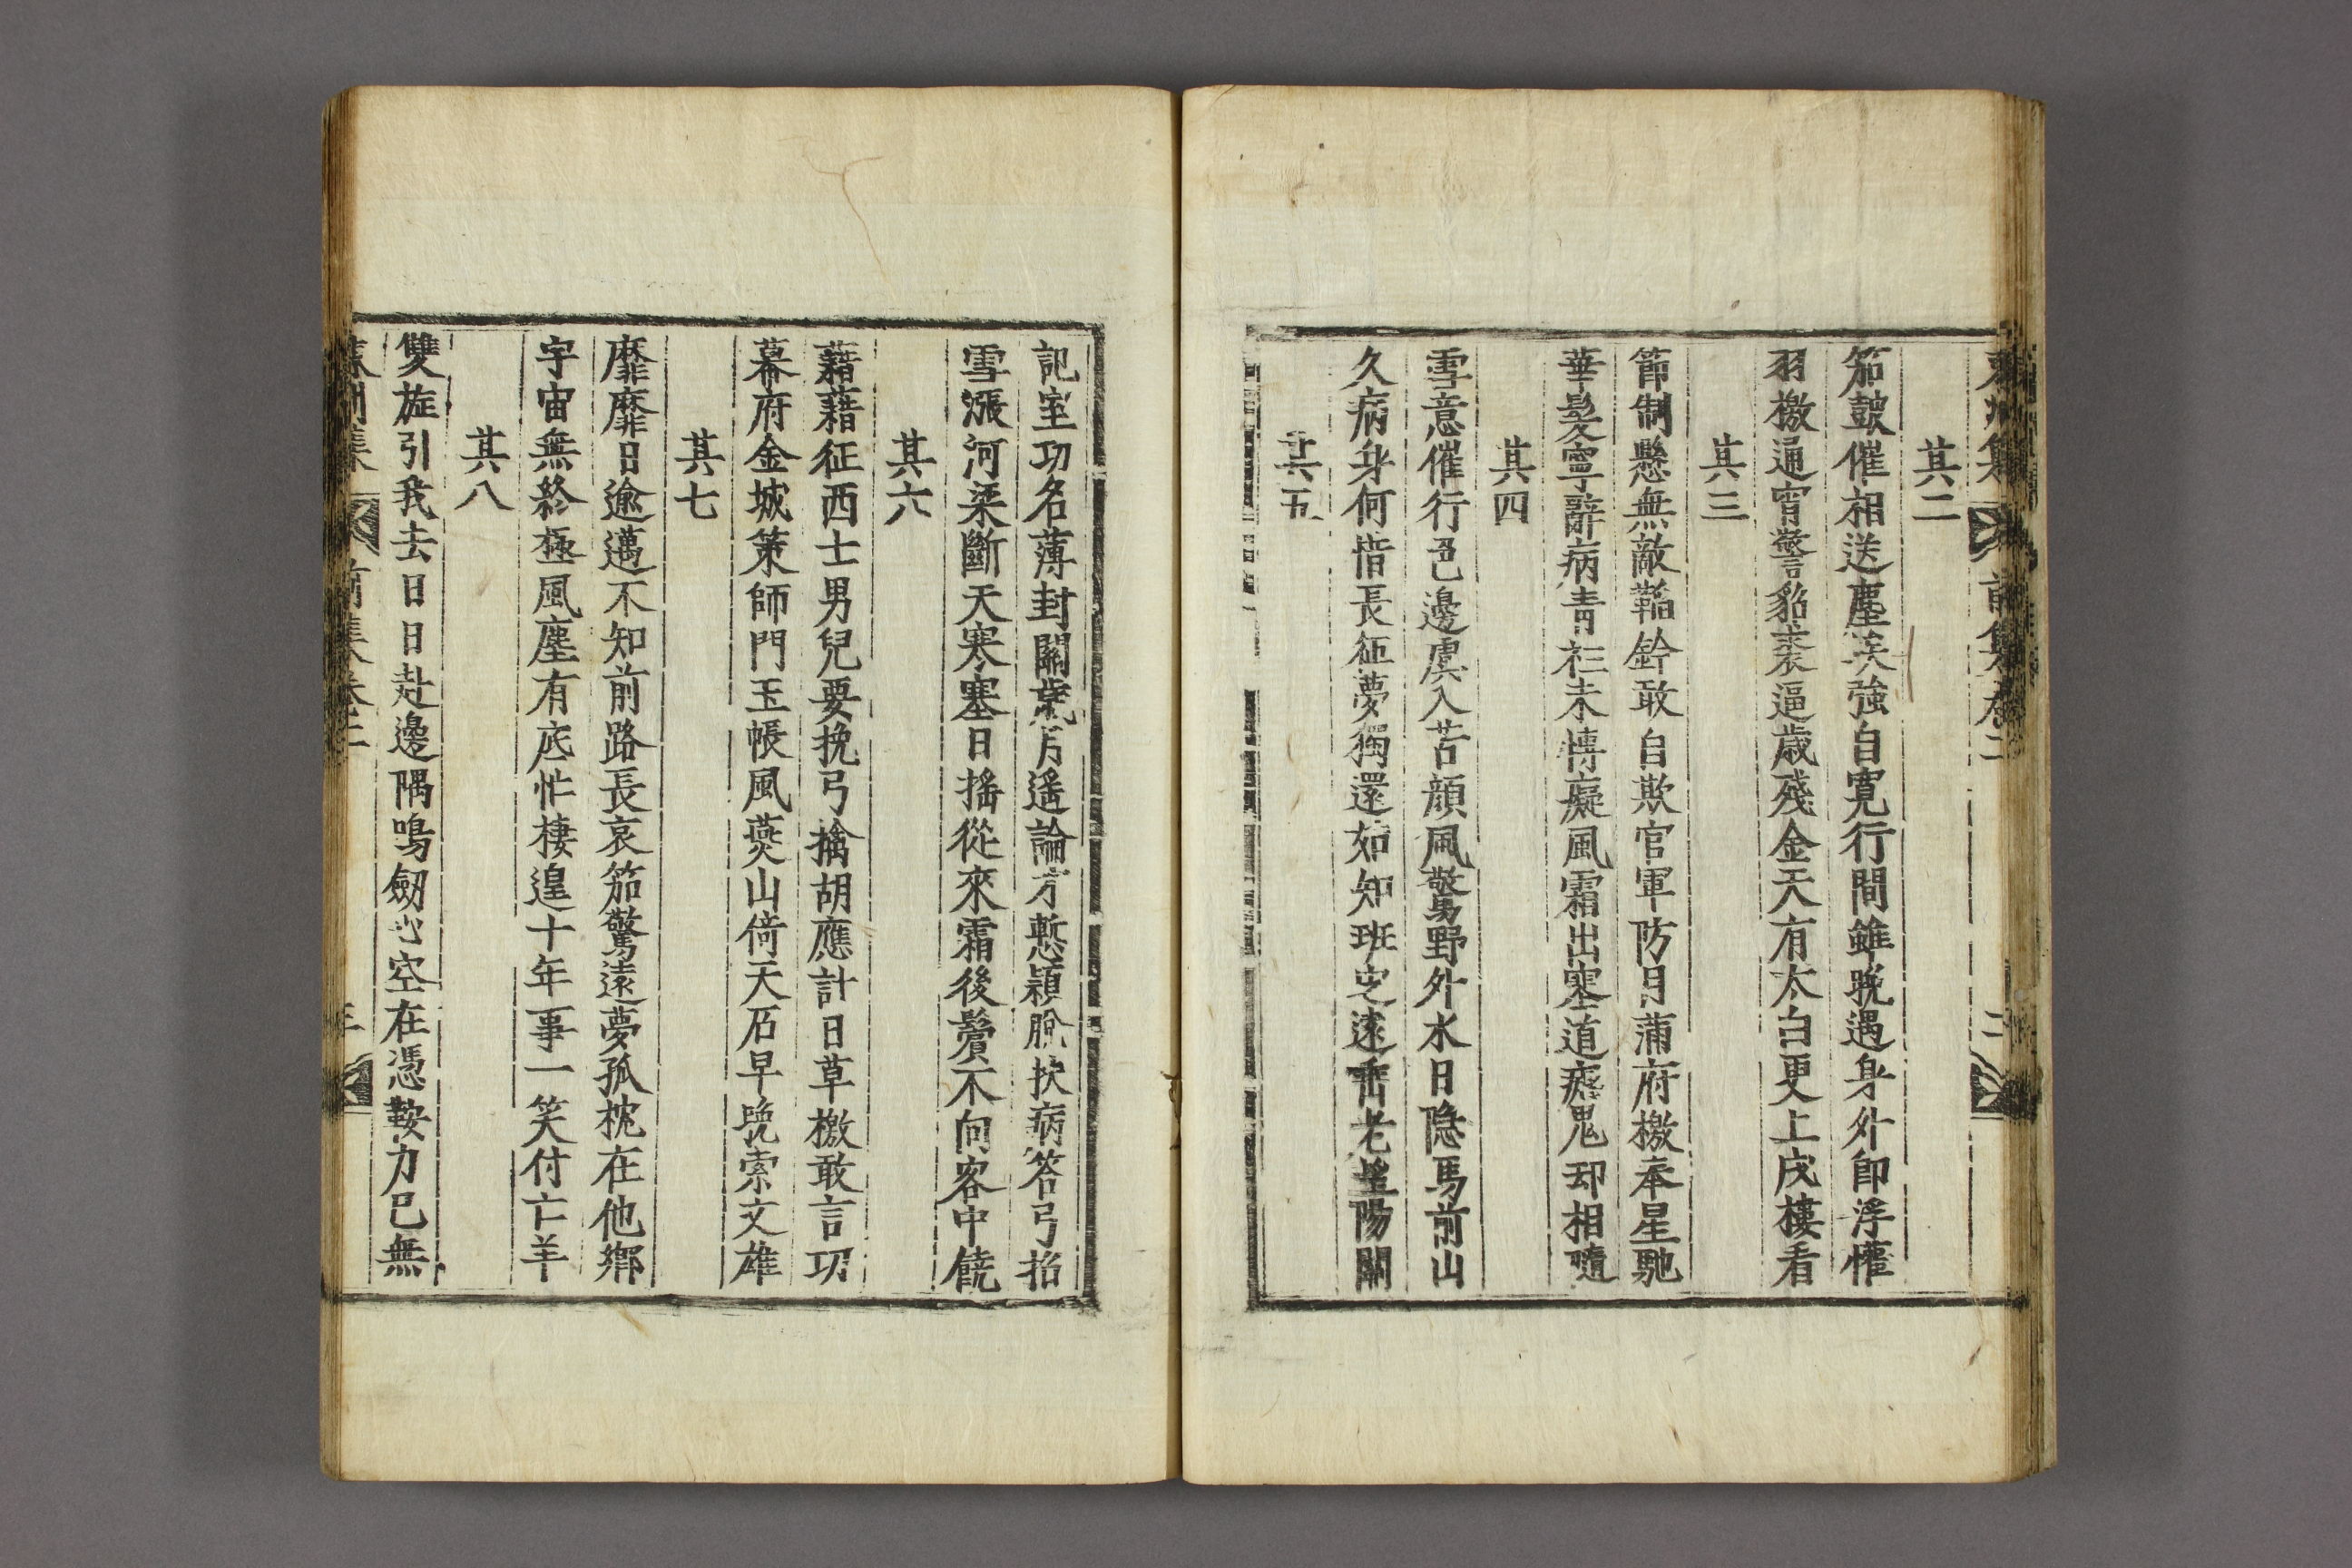 其二
笳鼓催相送塵荚強自寬行間雖晩遇身外即浮懽
羽檄通宵警貂裘逼歲殘金天有太白更上戍樓看
其三
節制懸無敵鞱鈐敢自欺官軍防月蒲府檄奉星馳
華髮寧辭病青衫未博癡風霜出塞道瘧鬼却相隨
其四
雪意催行色邊虞入苦顔風驚野外水日隱馬前山
久病身何惜長征夢獨還始知班定遠垂老望陽關
其五
記室功名薄封關歲月遙論才慙穎脫扶病答弓招
雪漲河梁斷天寒塞日搖從來霜後鬢不向客中饒
其六
藉藉征西士男兒要挽弓擒胡應計日草檄敢言功
幕府金城策師門玉帳風燕山倚天石早晩索文雄
其七
靡靡日逾邁不知前路長哀笳驚遠夢孤枕在他鄉
宇宙無終極風塵有底忙棲遑十年事一笑付亡羊
其八
雙旌引我去日日赴邊隅鳴劒心空在憑鞍力已無
前集卷二